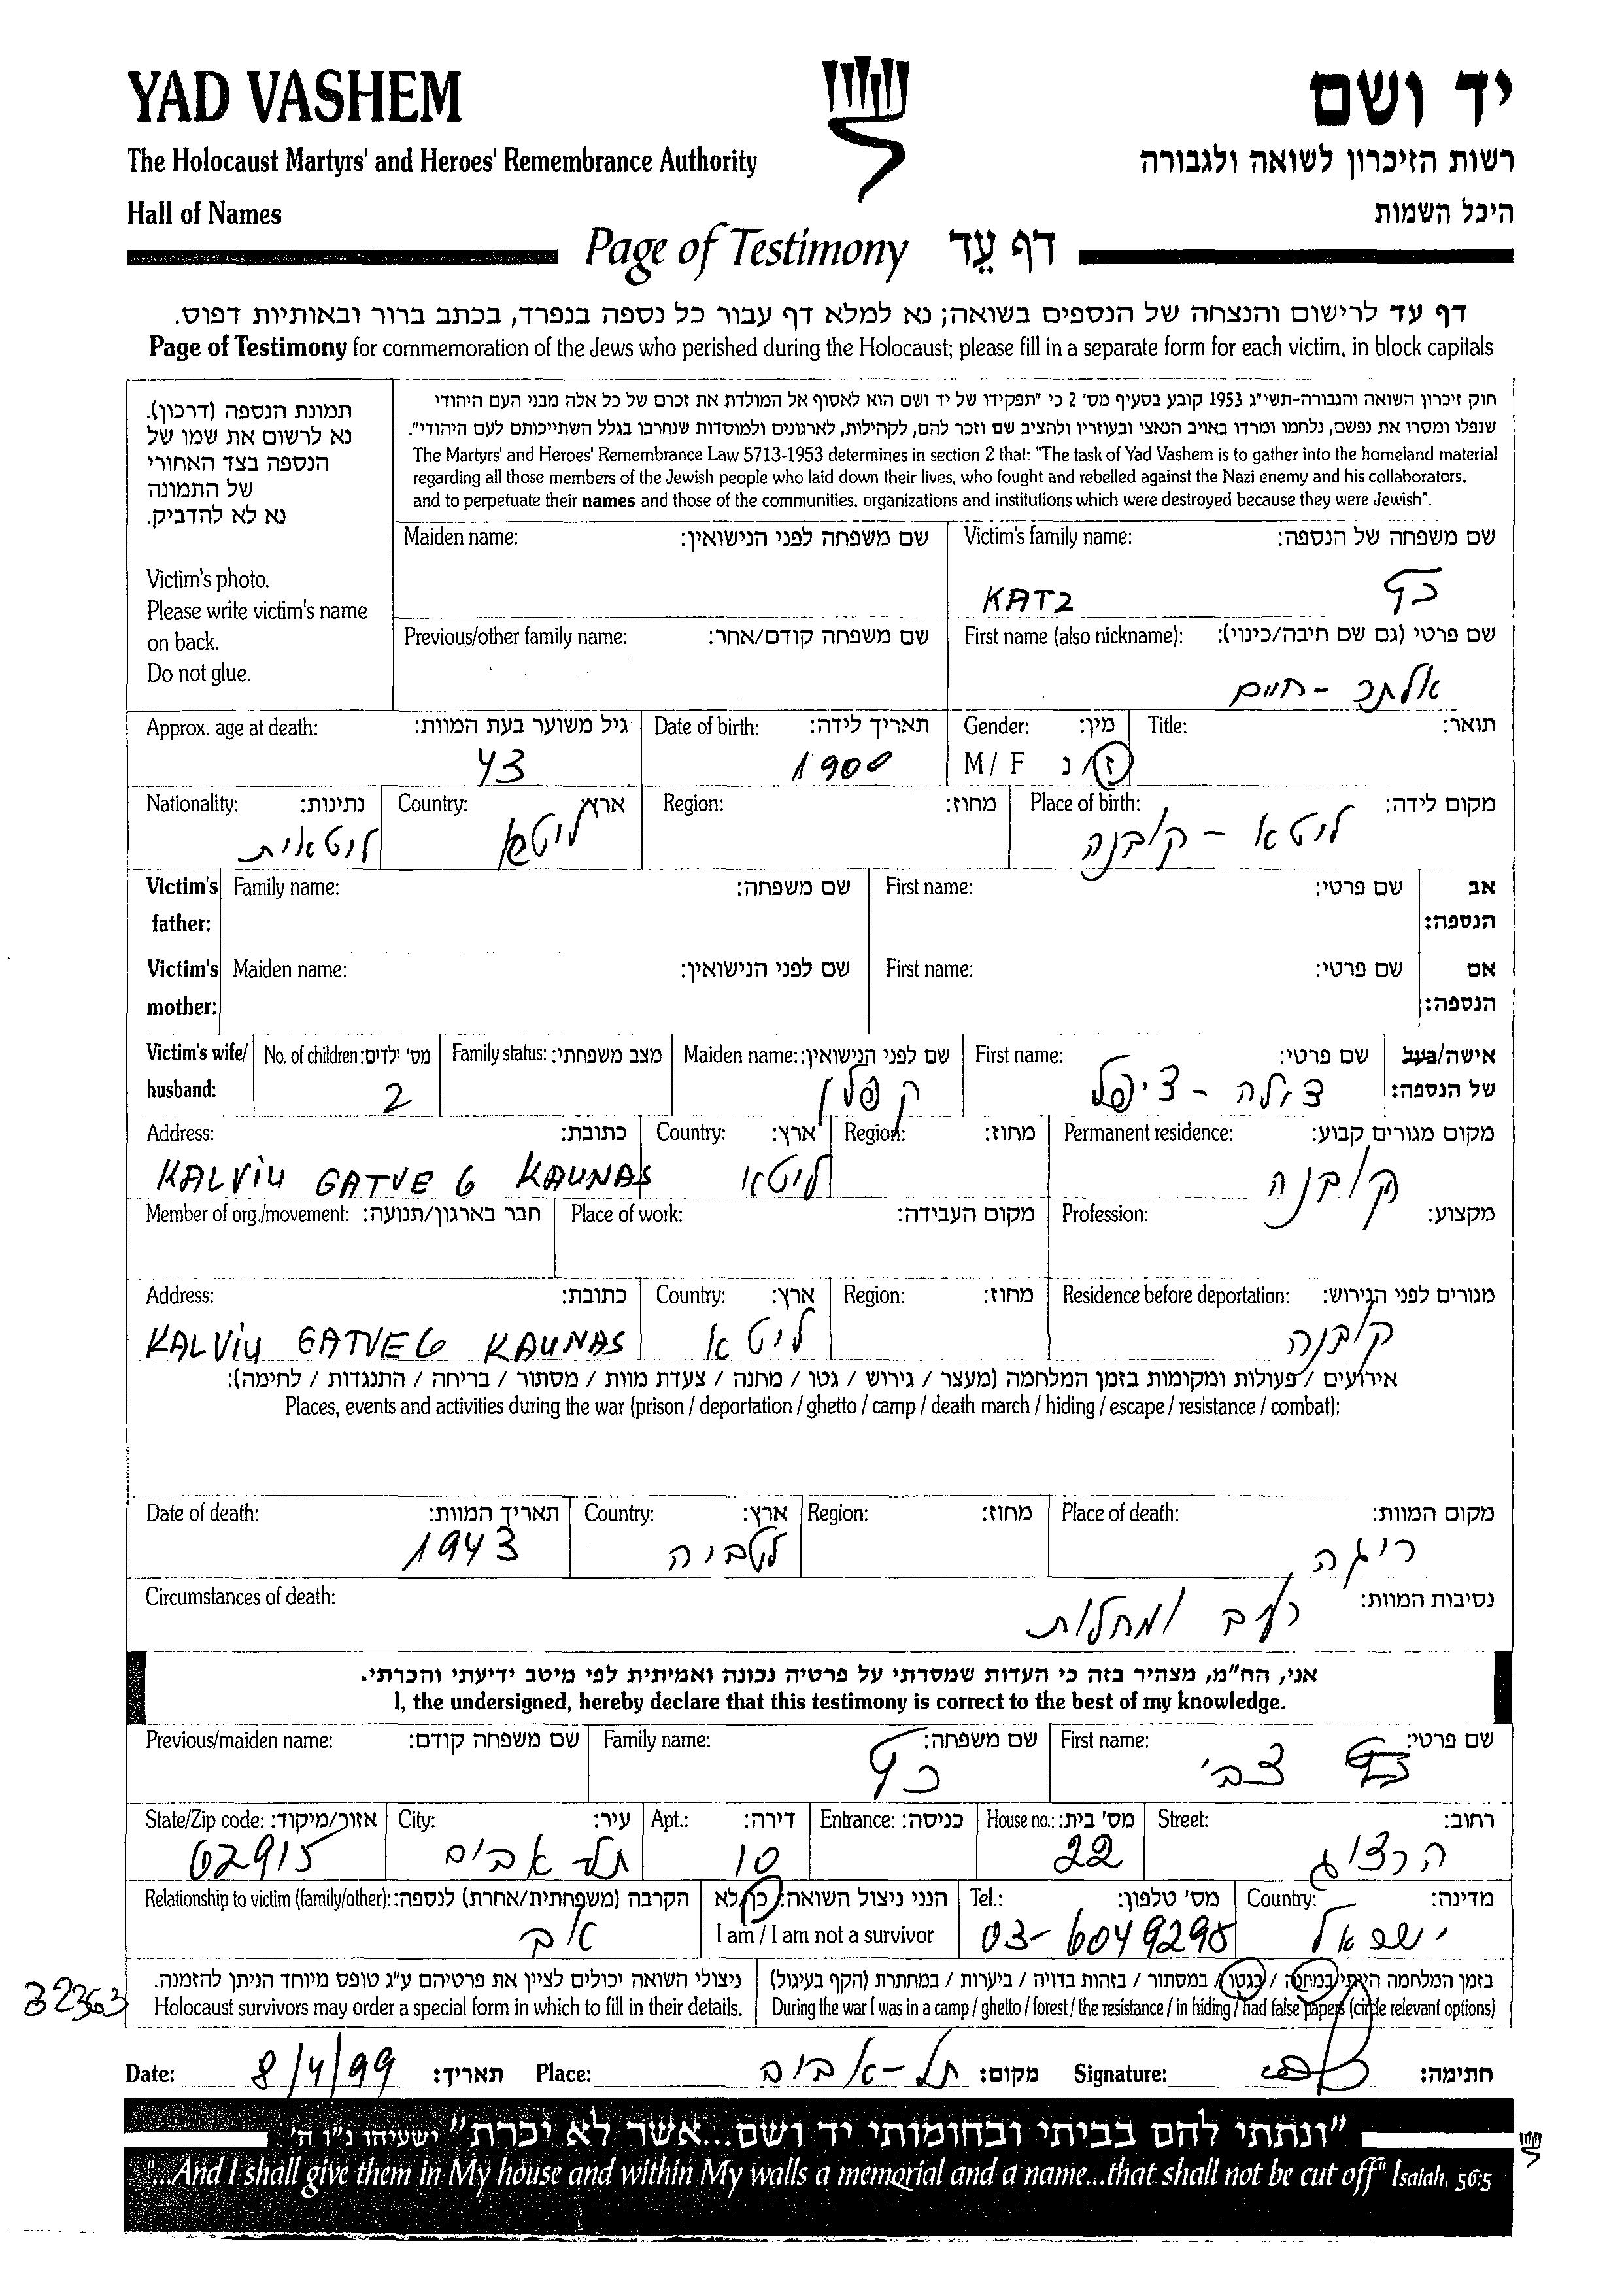 YAD VASHEM
יד ושם
The Holocaust Martyrs' and Heroes' Remembrance Authority
רשות הזיכרון לשואה ולגבורה
Hall of Names
היכל השמות
Page of Testimony דף עֵד
דף עד לרישום והנצחה של הנספים בשואה; נא למלא דף עבור כל נספה בנפרד, בכתב ברור ובאותיות דפוס.
Page of Testimony for commemoration of the Jews who perished during the Holocaust; please fill in a separate form for each victim, in block capitals
תמונת הנספה (דרכון).
נא לרשום את שמו של
הנספה בצד האחורי
של התמונה
נא לא להדביק.
Victim's photo.
Please write victim's name
on back.
Do not glue.
חוק זיכרון השואה והגבורה-תשי"ג 1953 קובע בסעיף מס' 2 כי "תפקידו של יד ושם הוא לאסוף אל המולדת את זכרם של כל אלה מבני העם היהודי
שנפלו ומסרו את נפשם, נלחמו ומרדו באויב הנאצי ובעוזריו ולהציב שם וזכר להם, לקהילות, לארגונים ולמוסדות שנחרבו בגלל השתייכותם לעם היהודי".
The Martyrs' and Heroes' Remembrance Law 5713-1953 determines in section 2 that: "The task of Yad Vashem is to gather into the homeland material
regarding all those members of the Jewish people who laid down their lives, who fought and rebelled against the Nazi enemy and his collaborators,
and to perpetuate their names and those of the communities, organizations and institutions which were destroyed because they were Jewish".
Maiden name: שם משפחה לפני הנישואין: Victim's family name: שם משפחה של הנספה:
KATZ כץ
Previous/other family name: שם משפחה קודם/אחר: First name (also nickname): שם פרטי (גם שם חיבה/כינוי):
אלתר - חיים
Approx. age at death: גיל משוער בעת המוות: Date of birth: תאריך לידה: Gender: מין: Title: תואר:
43 1900 M / F ז/נ
Nationality: נתינות: Country: ארץ: Region: מחוז: Place of birth: מקום לידה:
ליטאית ליטא ליטא - קובנה
Victim's Family name: שם משפחה: First name: שם פרטי: אב
father: הנספה:
Victim's Maiden name: שם לפני הנישואין: First name: שם פרטי: אם
mother: הנספה:
Victim's wife/ No. of children: מס' ילדים: Family status: מצב משפחתי: Maiden name: שם לפני הנישואין: First name: שם פרטי: אישה/בעל
husband: 2 קפלן צילה - ציפל של הנספה:
Address: כתובת: Country: ארץ: Region: מחוז: Permanent residence: מקום מגורים קבוע:
KALViU GATVE 6 KAUNAS ליטא קובנה
Member of org./movement: חבר בארגון/תנועה: Place of work: מקום העבודה: Profession: מקצוע:
Address: כתובת: Country: ארץ: Region: מחוז: Residence before deportation: מגורים לפני הגירוש:
KALViU GATVE 6 KAUNAS ליטא קובנה
אירועים / פעולות ומקומות בזמן המלחמה (מעצר / גירוש / גטו / מחנה / צעדת מוות / מסתור / בריחה / התנגדות / לחימה):
Places, events and activities during the war (prison / deportation / ghetto / camp / death march / hiding / escape / resistance / combat):
Date of death: תאריך המוות: Country: ארץ: Region: מחוז: Place of death: מקום המוות:
1943 לטביה ריגה
Circumstances of death: נסיבות המוות:
רעב ומחלות
אני, הח"מ, מצהיר בזה כי העדות שמסרתי על פרטיה נכונה ואמיתית לפי מיטב ידיעתי והכרתי.
I, the undersigned, hereby declare that this testimony is correct to the best of my knowledge.
Previous/maiden name: שם משפחה קודם: Family name: שם משפחה: First name: שם פרטי:
כץ צבי
State/Zip code: אזור/מיקוד: City: עיר: Apt.: דירה: Entrance: כניסה: House no.: מס' בית: Street: רחוב:
62915 תל אביב 10 22 הרצוג
Relationship to victim (family/other): הקרבה (משפחתית/אחרת) לנספה: הנני ניצול השואה: כן/לא Tel.: מס' טלפון: Country: מדינה:
אב I am / I am not a survivor 03-6049298 ישראל
ניצולי השואה יכולים לציין את פרטיהם ע"ג טופס מיוחד הניתן להזמנה. בזמן המלחמה הייתי במחנה / בגטו / במסתור / בזהות בדויה / ביערות / במחתרת (הקף בעיגול)
32363 Holocaust survivors may order a special form in which to fill in their details. During the war I was in a camp / ghetto / forest / the resistance / in hiding / had false papers (circle relevant options)
Date: 8/4/99 תאריך: Place: תל-אביב מקום: Signature: חתימה:
"ונתתי להם בביתי ובחומותי יד ושם...אשר לא יכרת" ישעיהו נ"ו ה'
"...And I shall give them in My house and within My walls a memorial and a name...that shall not be cut off" Isaiah, 56:5